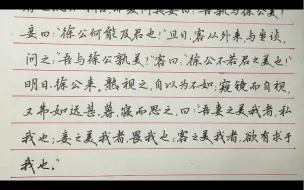 妾曰："徐公何能及君也！"旦日，客从外来，与坐谈，
问之："吾与徐公孰美？"客曰："徐公不若君之美也！"
明日，徐公来。熟视之，自以为不如；窥镜而自视，
又弗如远甚。暮，寝而思之，曰："吾妻之美我者，私
我也；妾之美我者，畏我也；客之美我者，欲有求于
我也。"